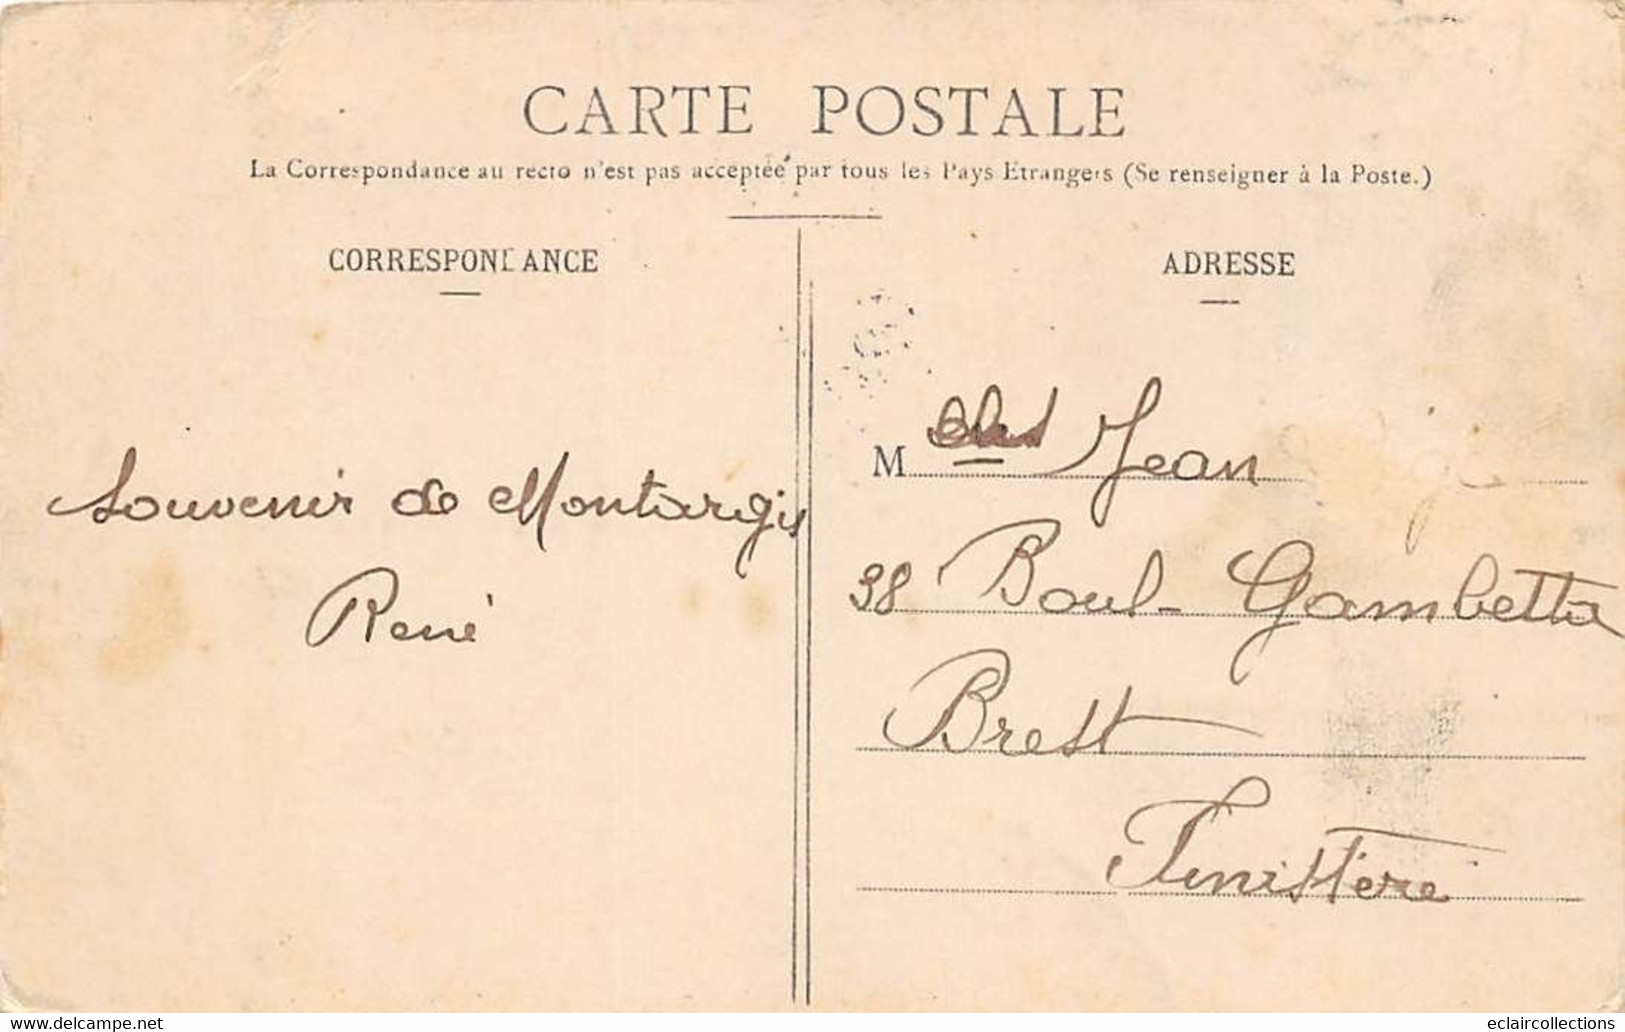 CARTE POSTALE
La Correspondance au recto n'est pas acceptée par tous les Pays Etrangers (Se renseigner à la Poste.)
CORRESPONDANCE
Souvenir de Montargis
René
ADRESSE
M Jean
38 Boul- Gambetta
Brest
Finistère
www.delcampe.net
eclaircollections